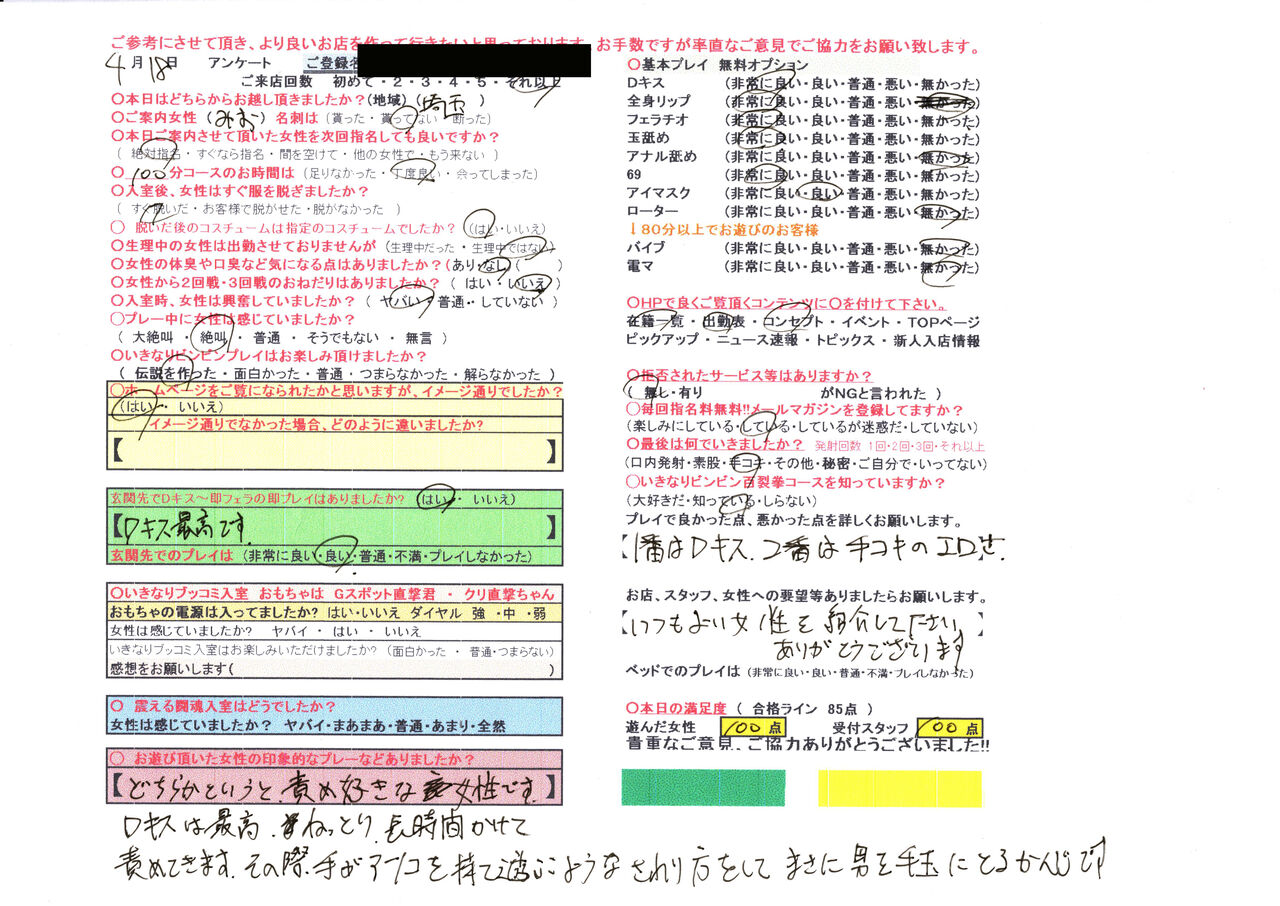 ご参考にさせて頂き、より良いお店を作って行きたいと思っております。お手数ですが率直なご意見でご協力をお願い致します。
4月18日 アンケート ご登録名
ご来店回数 初めて・2・3・4・5・それ以上
〇本日はどちらからお越し頂きましたか?(地域)(埼玉)
〇ご案内女性 (みお) 名刺は (貰った・貰ってない・断った)
〇本日ご案内させて頂いた女性を次回指名しても良いですか?
(絶対指名・すぐなら指名・間を空けて・他の女性で・もう来ない)
〇 100分コースのお時間は (足りなかった・丁度良い・余ってしまった)
〇入室後、女性はすぐ服を脱ぎましたか?
(すぐ脱いだ・お客様で脱がせた・脱がなかった)
〇 脱いだ後のコスチュームは指定のコスチュームでしたか? (はい・いいえ)
〇生理中の女性は出勤させておりませんが (生理中だった・生理中ではない)
〇女性の体臭や口臭など気になる点はありましたか?(あり・なし( )
〇女性から2回戦・3回戦のおねだりはありましたか? (はい・いいえ)
〇入室時、女性は興奮していましたか? (ヤバい・普通・・していない)
〇プレー中に女性は感じていましたか?
(大絶叫・絶叫・普通・そうでもない・無言)
〇いきなりビンビンプレイはお楽しみ頂けましたか?
(伝説を作った・面白かった・普通・つまらなかった・解らなかった)
〇ホームページをご覧になられたかと思いますが、イメージ通りでしたか?
(はい・いいえ)
イメージ通りでなかった場合、どのように違いましたか?
【 】
玄関先でDキス~即フェラの即プレイはありましたか? (はい・いいえ)
【Dキス最高です。】
玄関先でのプレイは (非常に良い・良い・普通・不満・プレイしなかった)
〇いきなりブッコミ入室 おもちゃは Gスポット直撃君 ・ クリ直撃ちゃん
おもちゃの電源は入ってましたか? はい・いいえ ダイヤル 強・中・弱
女性は感じていましたか? ヤバイ・はい・いいえ
いきなりブッコミ入室はお楽しみいただけましたか? (面白かった・普通・つまらない)
感想をお願いします( )
〇 震える闘魂入室はどうでしたか?
女性は感じていましたか? ヤバイ・まあまあ・普通・あまり・全然
〇 お遊び頂いた女性の印象的なプレーなどありましたか?
【どちらかというと、責め好きな女性です。】
Dキスは最高、ねっとり長時間かけて
責めてきます。その際、手がアソコを持て遊ぶようなされ方をして まさに男を手玉にとるかんじです
〇基本プレイ 無料オプション
Dキス (非常に良い・良い・普通・悪い・無かった)
全身リップ (非常に良い・良い・普通・悪い・無かった)
フェラチオ (非常に良い・良い・普通・悪い・無かった)
玉舐め (非常に良い・良い・普通・悪い・無かった)
アナル舐め (非常に良い・良い・普通・悪い・無かった)
69 (非常に良い・良い・普通・悪い・無かった)
アイマスク (非常に良い・良い・普通・悪い・無かった)
ローター (非常に良い・良い・普通・悪い・無かった)
↓80分以上でお遊びのお客様
バイブ (非常に良い・良い・普通・悪い・無かった)
電マ (非常に良い・良い・普通・悪い・無かった)
〇HPで良くご覧頂くコンテンツに〇を付けて下さい。
在籍一覧・出勤表・コンセプト・イベント・TOPページ
ピックアップ・ニュース速報・トピックス・新人入店情報
〇拒否されたサービス等はありますか?
(無し・有り がNGと言われた)
〇毎回指名料無料!!メールマガジンを登録してますか?
(楽しみにしている・している・しているが迷惑だ・していない)
〇最後は何でいきましたか? 発射回数 1回・2回・3回・それ以上
(口内発射・素股・手コキ・その他・秘密・ご自分で・いってない)
〇いきなりビンビン百裂拳コースを知っていますか?
(大好きだ・知っている・しらない)
プレイで良かった点、悪かった点を詳しくお願いします。
【1番はDキス、2番は手コキのエロさ。
お店、スタッフ、女性への要望等ありましたらお願いします。
【いつもよい女性を紹介して下さい。】
ありがとうございます
ベッドでのプレイは (非常に良い・良い・普通・不満・プレイしなかった)
〇本日の満足度 (合格ライン 85点)
遊んだ女性 100点 受付スタッフ 100点
貴重なご意見、ご協力ありがとうございました!!